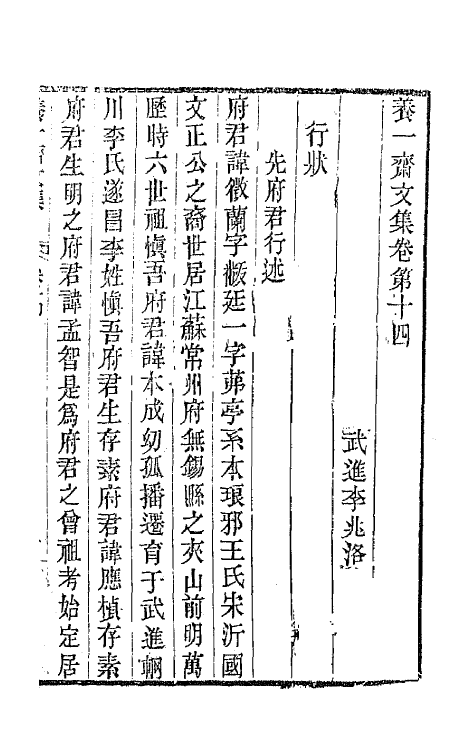 養一齋文集卷第十四
武進李兆洛
行狀
先府君行述
府君諱徵蘭字畹廷一字茀亭系本琅邪王氏宋沂國
文正公之裔世居江蘇常州府無錫縣之夾山前明萬
歷時六世祖慎吾府君諱本成幼孤播遷育于武進輞
川李氏遂冒李姓慎吾府君生存素府君諱應楨存素
府君生明之府君諱孟智是為府君之曾祖考始定居